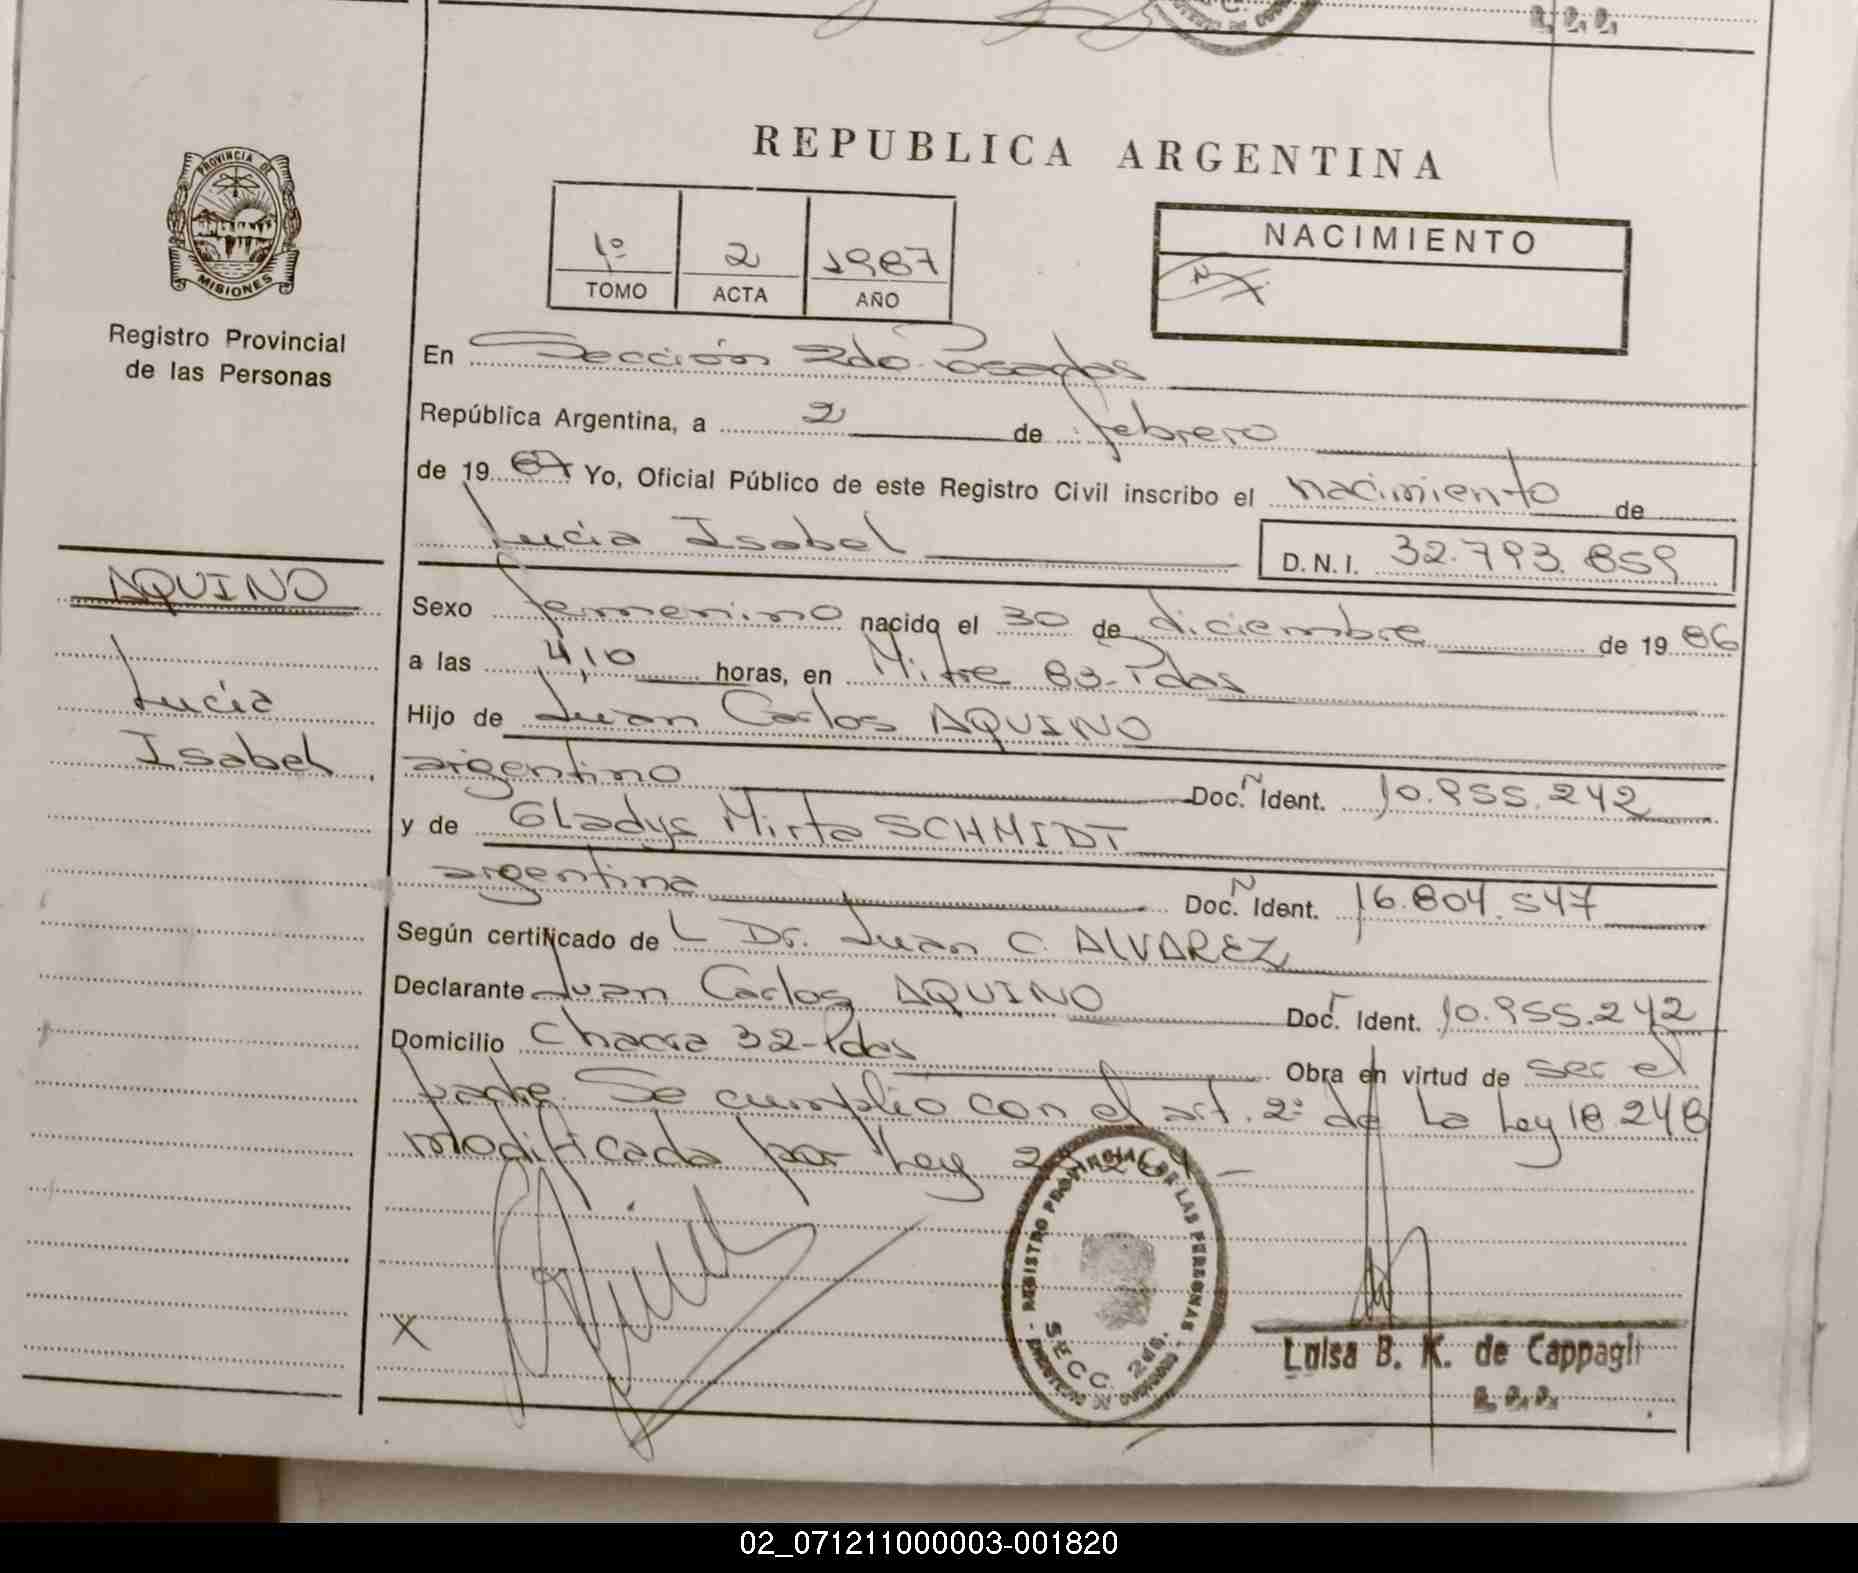 R. P. P.
REPUBLICA ARGENTINA
PROVINCIA DE
MISIONES
Registro Provincial
de las Personas
1º 2 1987
TOMO ACTA AÑO
NACIMIENTO
En Sección 2do. Posadas
República Argentina, a 2 de febrero
de 1987 Yo, Oficial Público de este Registro Civil inscribo el nacimiento de
Lucia Isabel D.N.I. 32.793.859
AQUINO
Lucía
Isabel
Sexo femenino nacido el 30 de diciembre de 1986
a las 4,10 horas, en Mitre 83-Pdas
Hijo de Juan Carlos AQUINO
argentino Doc. N Ident. 10.955.242
y de Gladys Mirta SCHMIDT
argentina Doc. N Ident. 16.804.547
Según certificado de L Dr. Juan C. ALVAREZ
Declarante Juan Carlos AQUINO Doc. Ident. 10.955.242
Domicilio Chacra 32-Pdas Obra en virtud de ser el
padre. Se cumplió con el art. 2º de la Ley 18.248
modificada por Ley
X
REGISTRO PROVINCIAL DE LAS PERSONAS
SECC. 2da.
Luisa B. K. de Cappagli
02_071211000003-001820